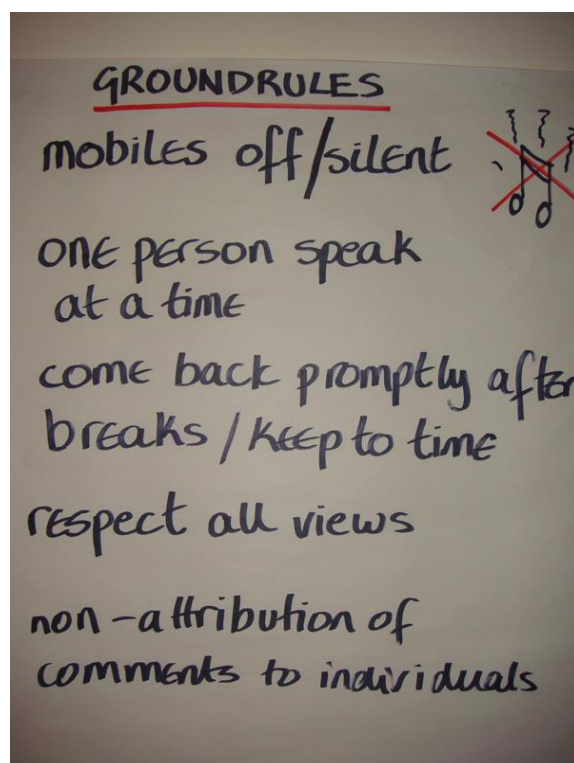 GROUNDRULES
mobiles off/silent
one person speak
at a time
come back promptly after
breaks / keep to time
respect all views
non-attribution of
comments to individuals